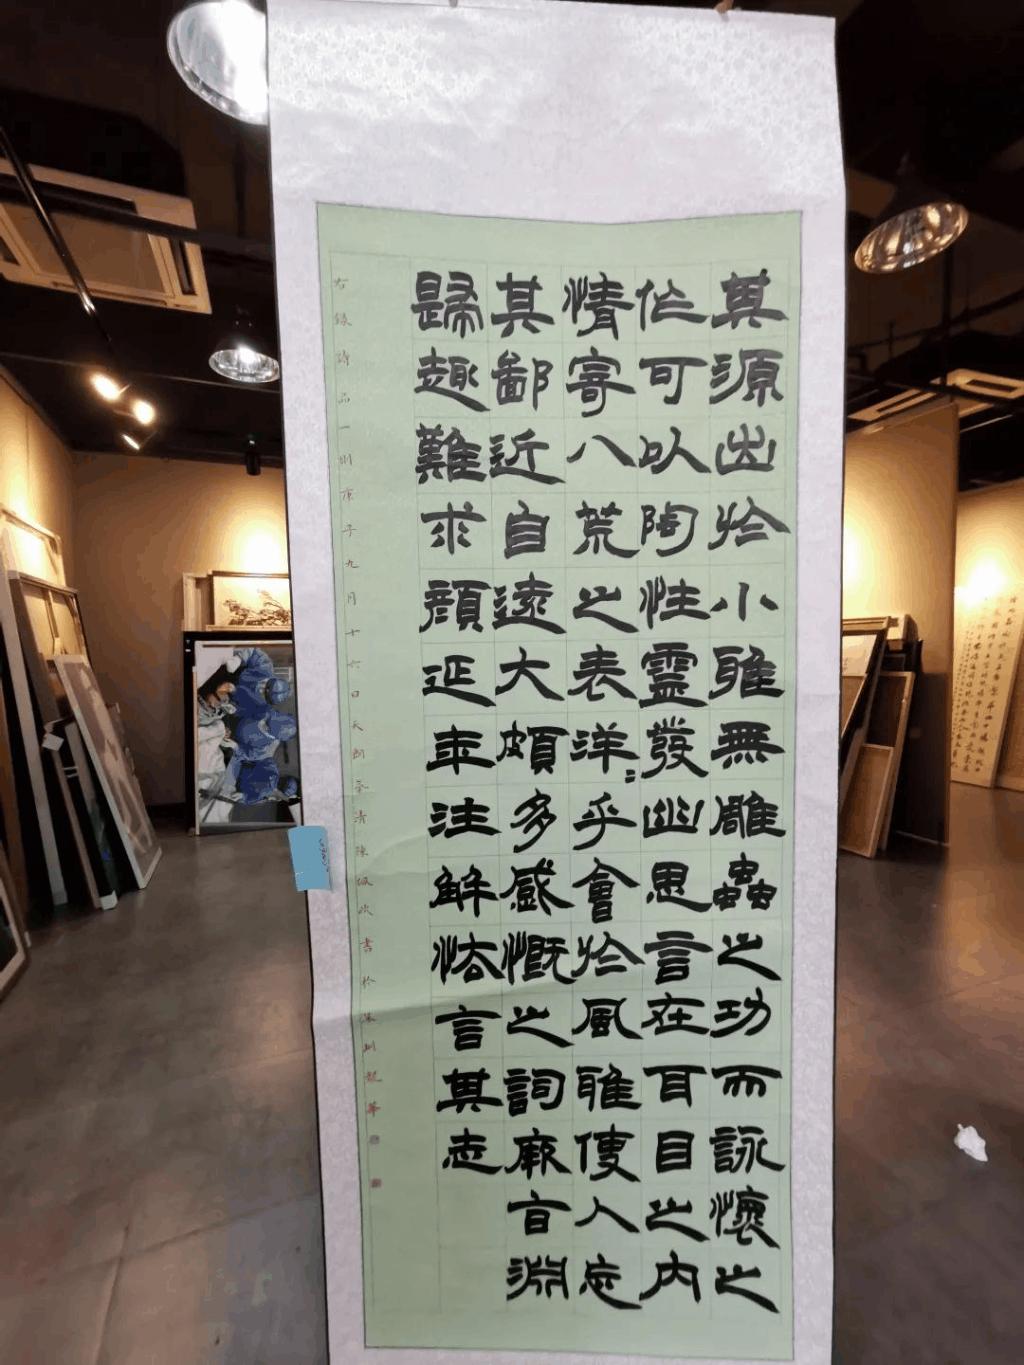 其源出於小雅無雕蟲之功而詠懷之
作可以陶性靈發幽思言在耳目之內
情寄八荒之表洋〻乎會於風雅使人忘
其鄙近自致遠大頗多感慨之詞厥旨淵
歸趣難求顏延年注解怯言其志
右錄詩品一則庚子九月十六日天朗氣清陳佩次書於深圳龍華